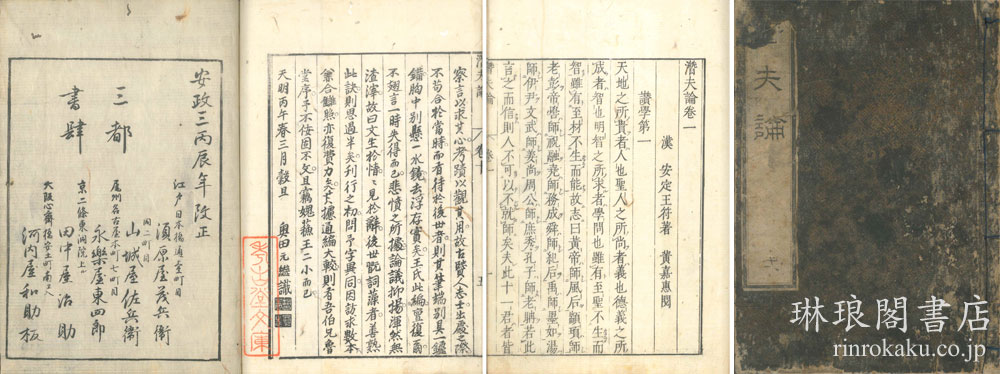 夫論
潛夫論卷一
漢 安定王符著 黄嘉惠閲
讃學第一
天地之所貴者人也聖人之所尚者義也德義之所
成者智也明智之所求者學問也雖有至聖不生而
智雖有至材不生而能故志曰黄帝師風后顓頊師
老彭帝嚳師祝融堯師務成舜師紀后禹師墨如湯
師伊尹文武師姜尚周公師庶秀孔子師老聃若此
言之而信則人不可以不就師矣夫此十一君者皆
潛夫論 卷一
潛夫論 卷十 五
察言以求其心考蹟以觀其用故古賢人志士出處之際
不苟合於當時而有待於後世者則其筆端別具一鑪
錯胸中別懸一水鏡去浮存實矣王氏此編亶復爾
不翅言一時失得而已悲憤之所攄論議抑揚渾然無
渣滓故曰文生於情々見於辭後世詞藻者善熟
此訣則思過半矣刊行之初問予字與同因訪求數本
彙合雖亦復費力矣其據通編大較則者吾伯兄魯
堂序予不佞固不文且竊媿王二小而已
天明丙午春三月穀旦 奥田元繼識
安政三丙辰年改正
三都
書肆
江戸日本橋通壹町目
須原屋茂兵衛
同二町目
山城屋佐兵衛
尾州名古屋本町七町目
永樂屋東四郎
京二條東洞院上ル
田中屋治助
大阪心齋橋安土町南ヘ入
河内屋和助板
琳琅閣書店
rinrokaku.co.jp